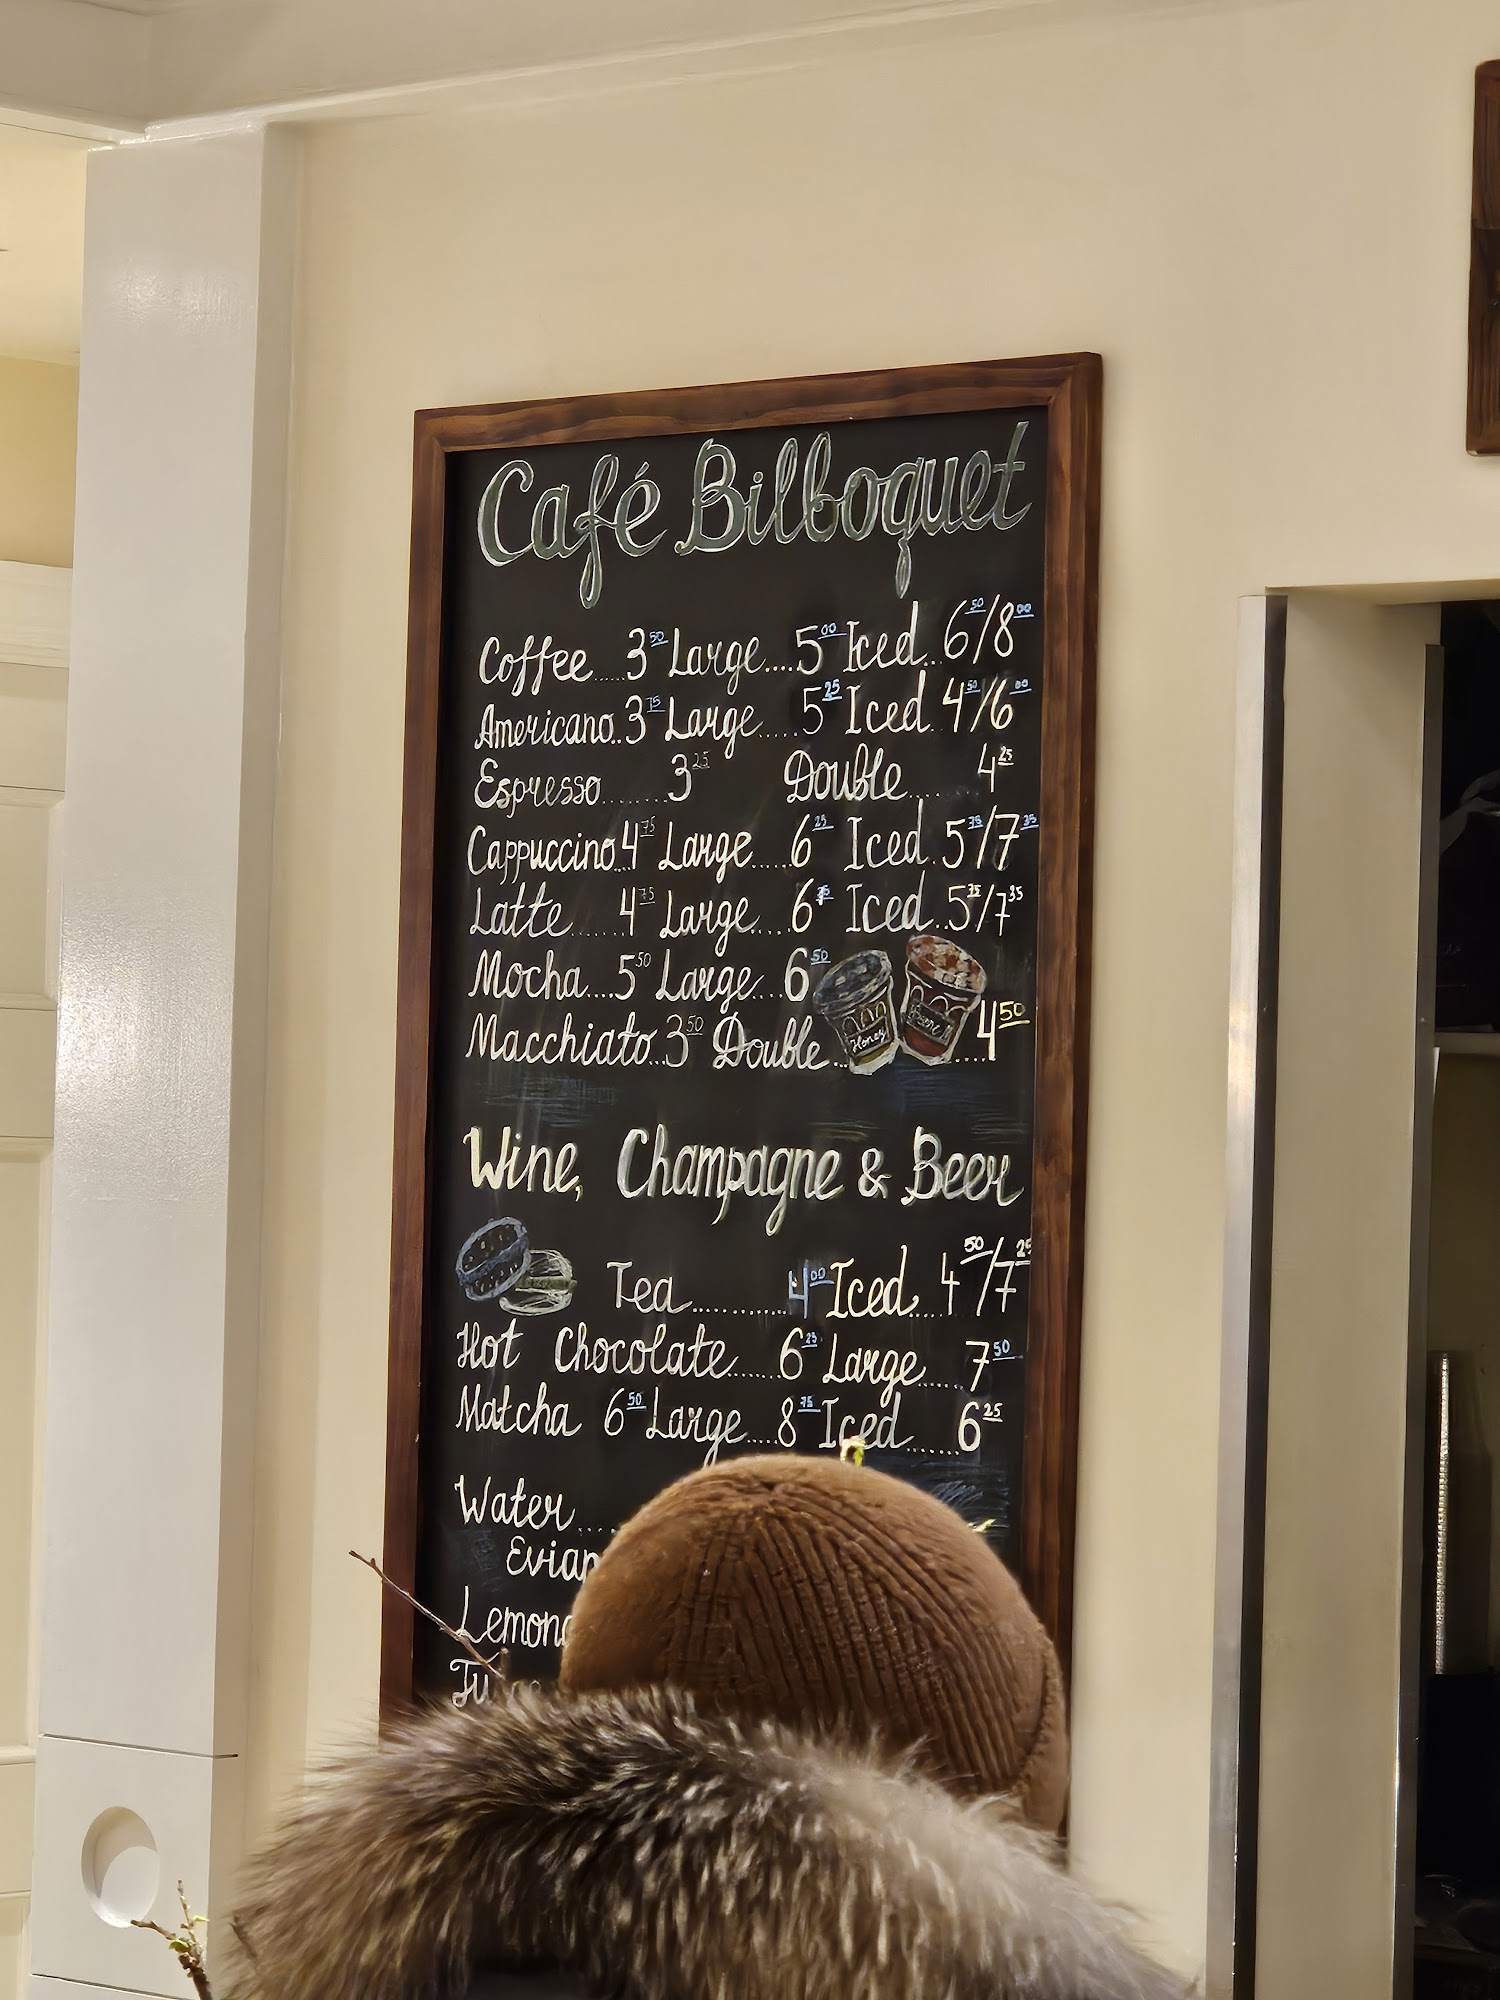 Café Bilboquet
Coffee.....3.50 Large....5.00 Iced...6.50/8.00
Americano..3.75 Large.....5.25 Iced.4.50/6.00
Espresso.......3.25 Double......4.25
Cappuccino..4.75 Large.....6.25 Iced.5.75/7.35
Latte......4.75 Large.....6.75 Iced..5.75/7.35
Mocha....5.50 Large...6.50
Honey
Macchiato..3.50 Double......4.50
Wine, Champagne & Beer
Tea...........4.00 Iced....4.50/7.25
Hot Chocolate.......6.25 Large.....7.50
Matcha 6.50 Large....8.75 Iced......6.25
Water....
Evian
Lemona
Ju